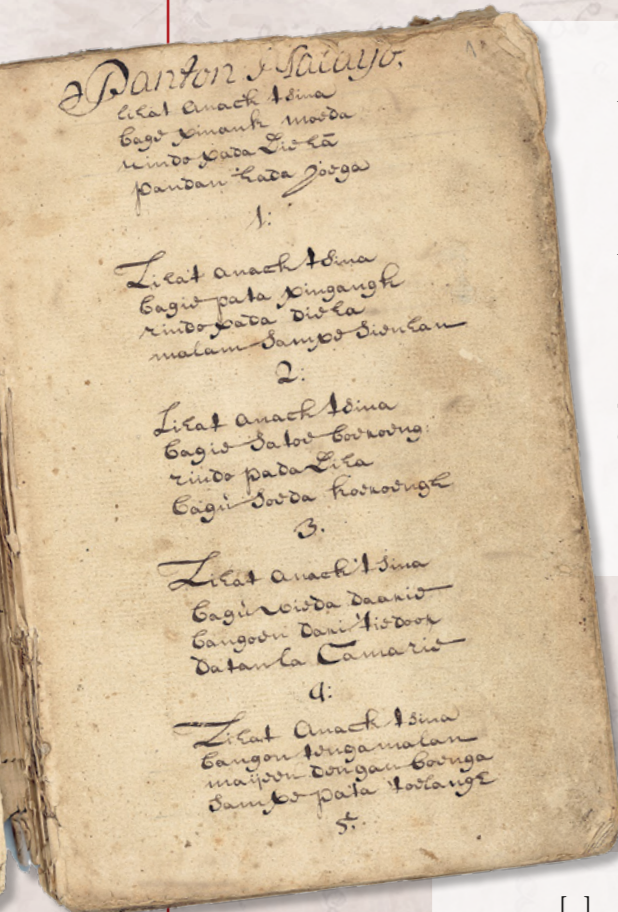 Panton
Lihat anack tsina
bage pinank moeda
rindo pada Dieha
pandan hada joega
1:
Lihat anack tsina
bagie pata pingangh
rindo pada dieha
malam Sampe Sienhan
2:
Lihat anack tsina
bagie Satoe boeroeng
rindo pada Diha
bagie Soeda koeroengh
3.
Lihat anack tsina
bagie daarie
bangoen dari tiedoor
datanla Camarie
4:
Lihat Anack tsina
bangon tengamalan
maijeen dengan boenga
Sampe pata toelangh
5.
[ ]